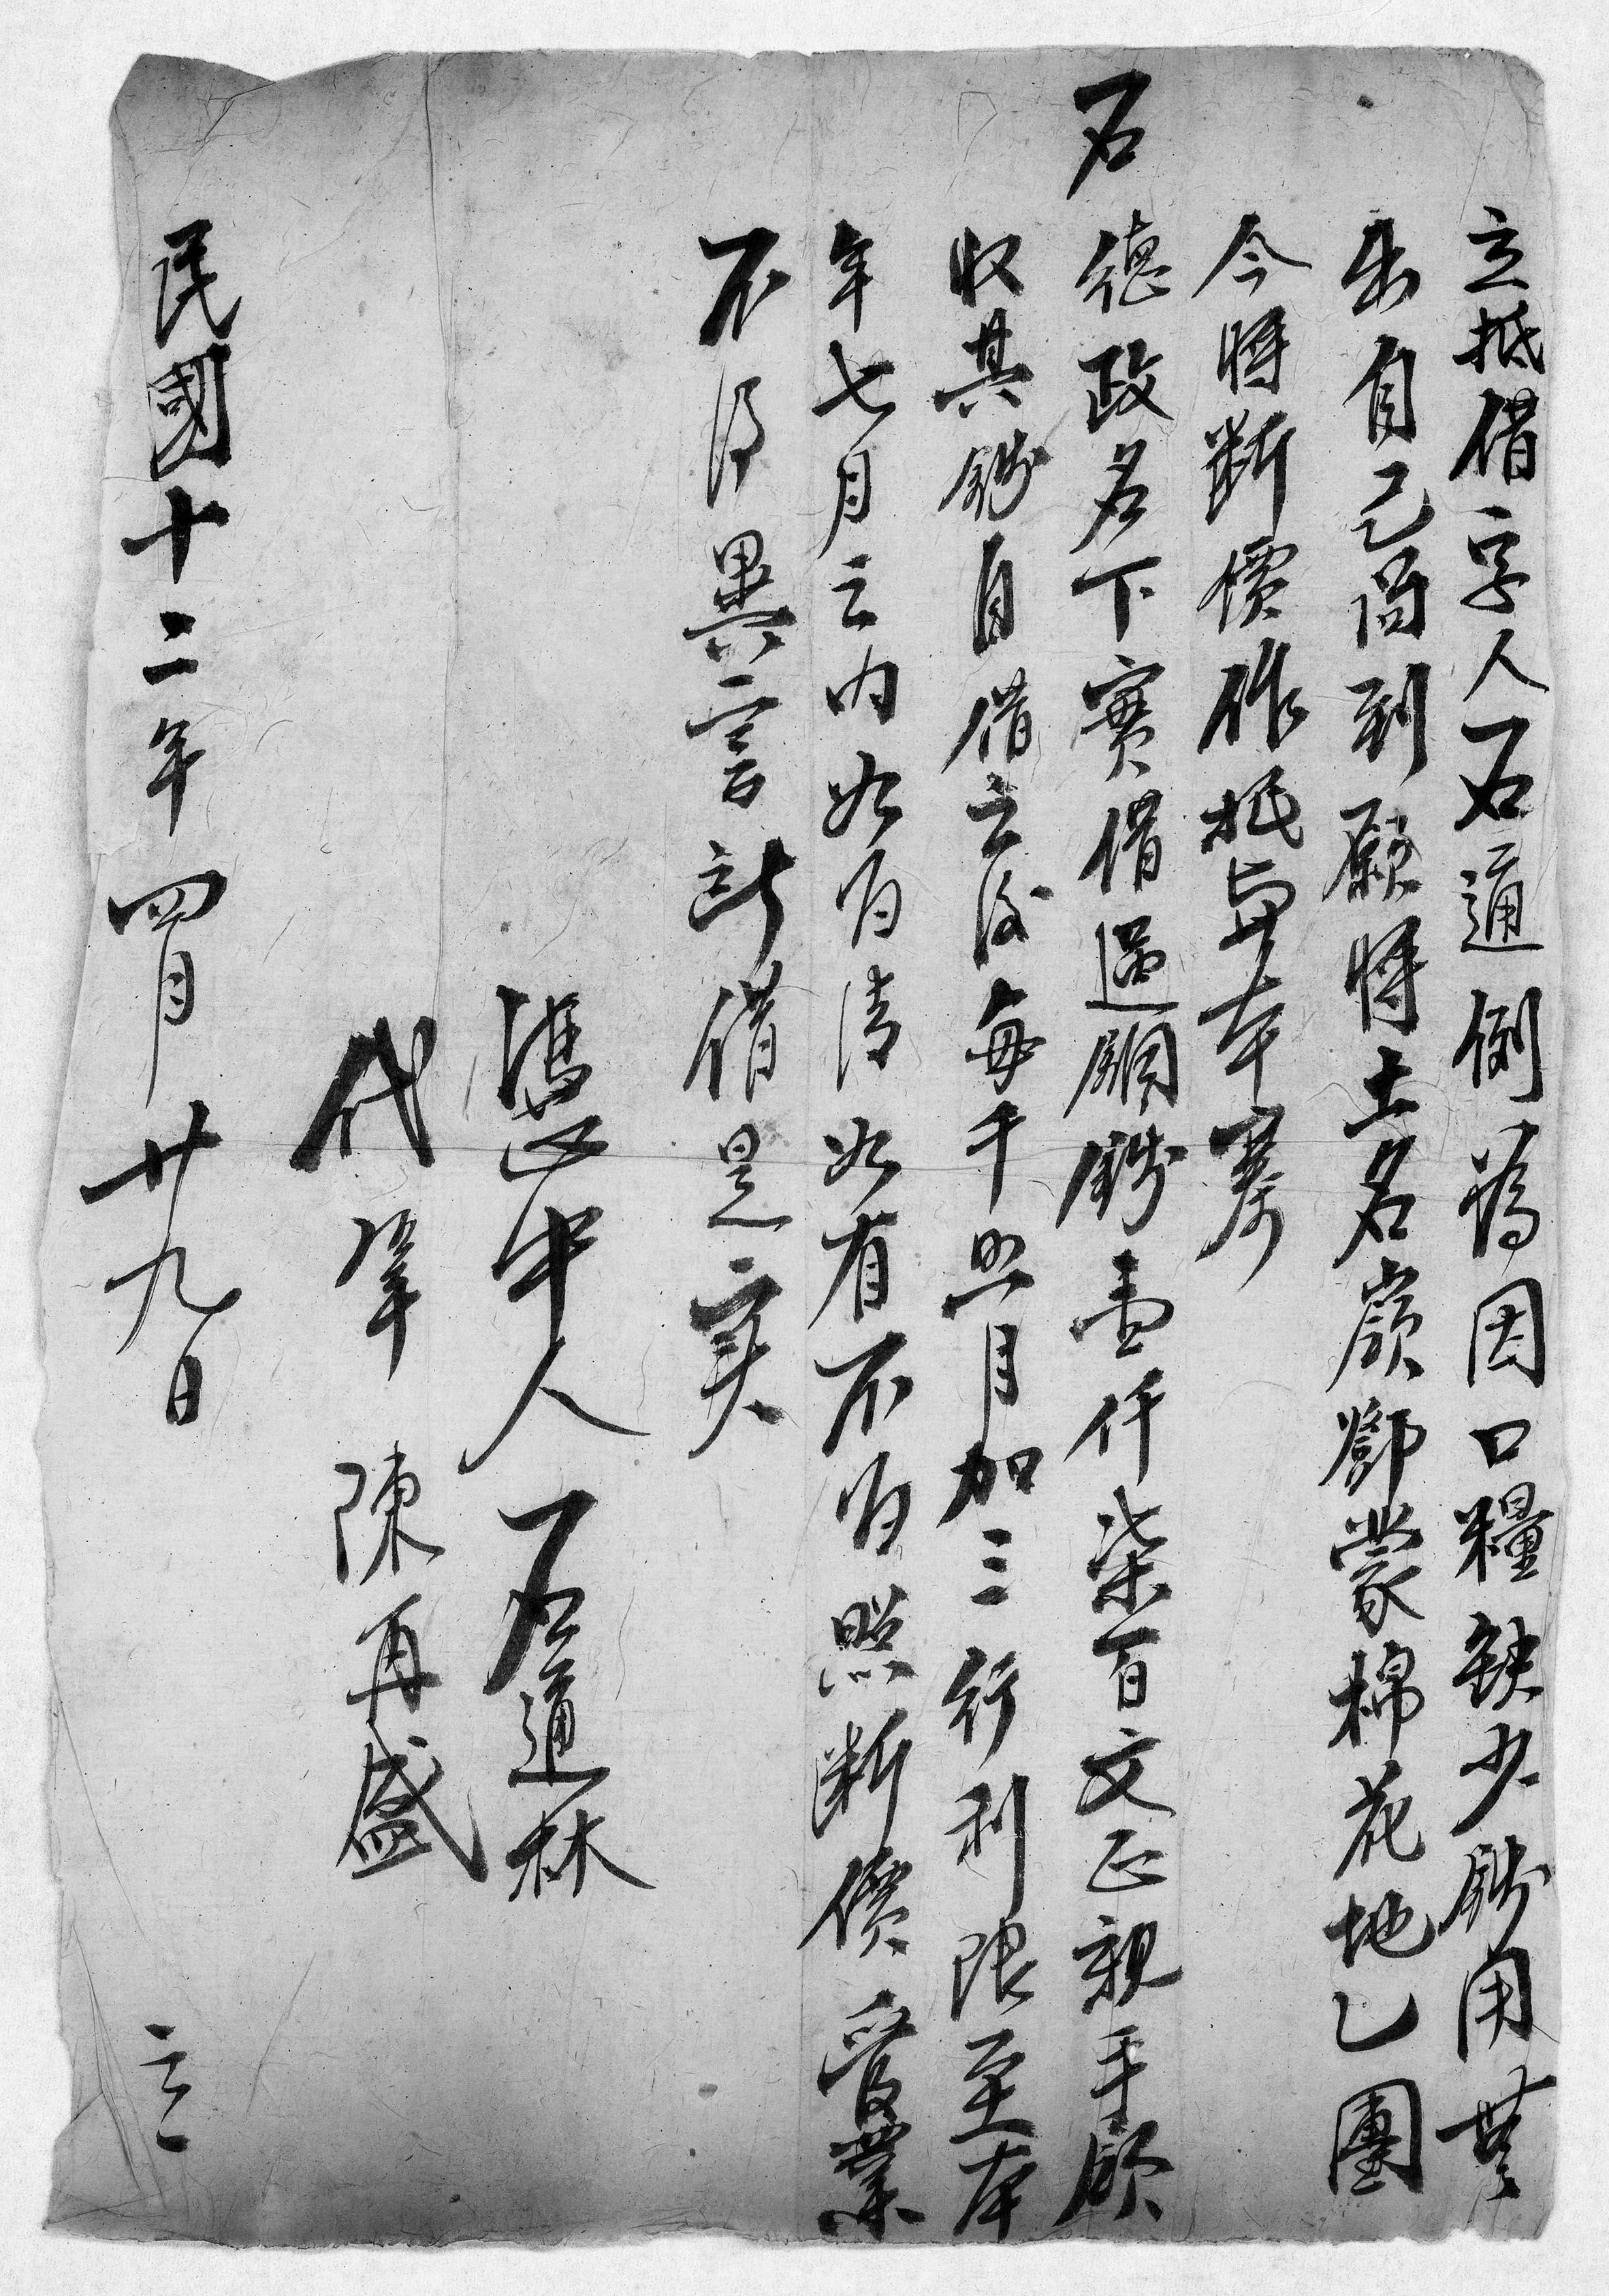 立抵借字人石通倒為因口糧缺少錢用無
出自己問到願將土名嶺鄧蒙棉花地乙團
今將斷價作抵與本寨
石德政名下實借過銅錢壹仟柒百文正親手領
收其錢自借之後每千照月加三行利限至本
年七月之內如有清如有不有照斷價管業
不得異言立此借是实
憑中人石通林
代筆陳再盛
民國十二年四月廿九日立